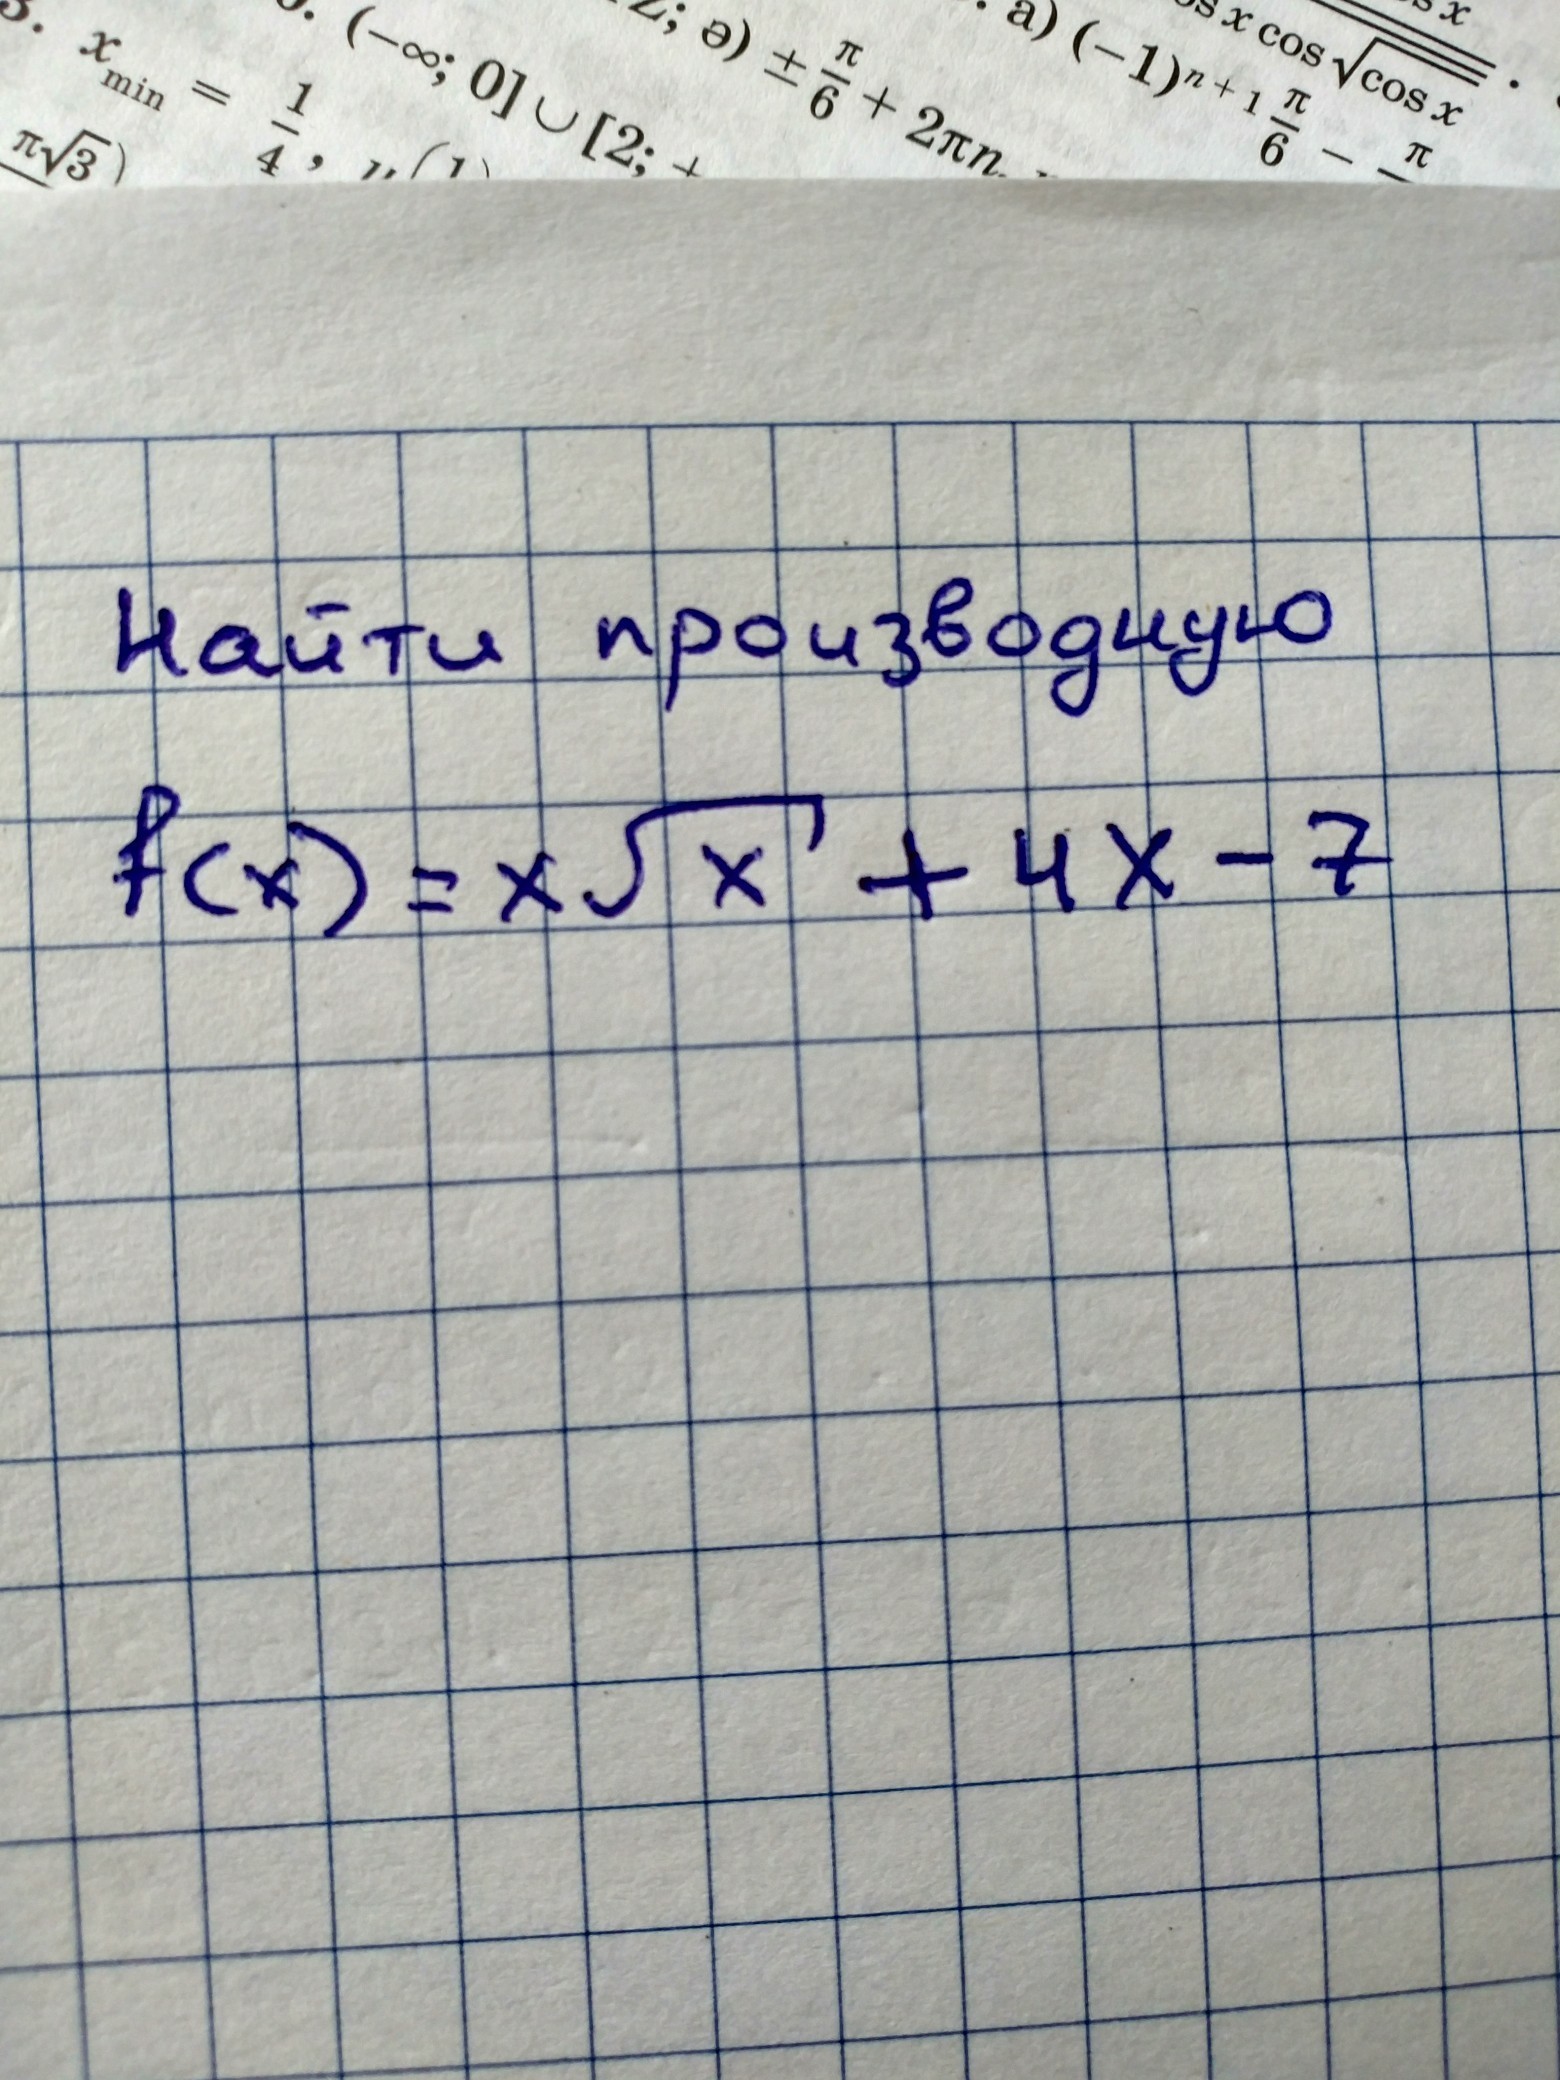 3. x_min = 1/4, y(1)
π√3)
(-∞; 0] ∪ [2; +
; ə) ± π/6 + 2πn,
а) (-1)^(n+1) π/6 - π
os x cos √cos x
Найти производную
f(x) = x√x + 4x - 7